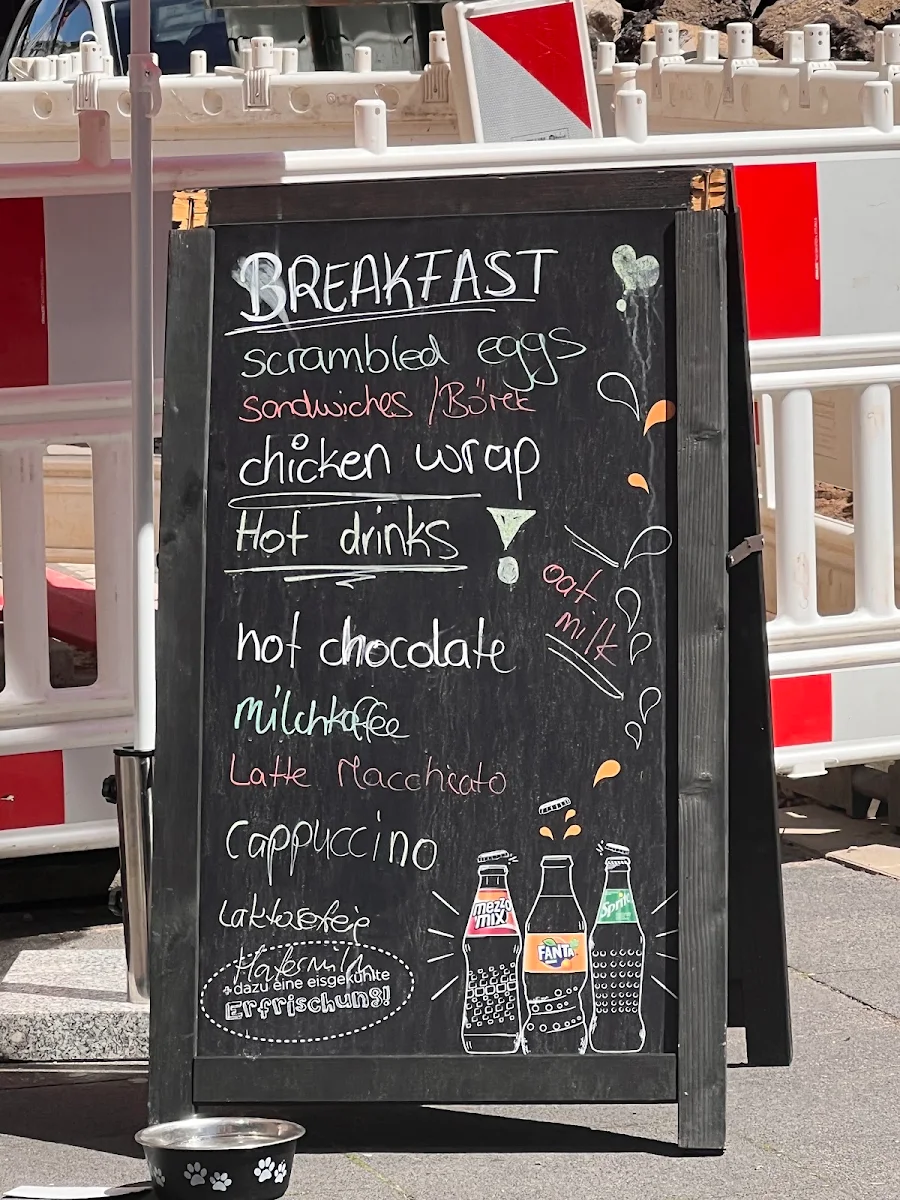 BREAKFAST
scrambled eggs
sandwiches / Börek
chicken wrap
Hot drinks
oat
milk
hot chocolate
milchkaffee
Latte Macchiato
Cappuccino
Laktosefreie
Hafermilch
+dazu eine eisgekühlte
Erfrischung!
mezzo
mix
FANTA
Sprite